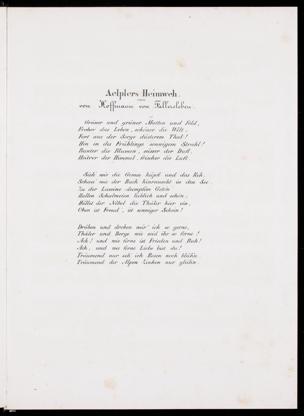 Aelplers Heimweh.
von Hoffmann von Fallersleben.
Grüner und grüner Matten und Feld,
Froher das Leben, schöner die Welt,
Fort aus der Sorge düsterem Thal!
Hin in des Frühlings sonnigem Strahl!
Bunter die Blumen, süsser der Duft,
Heitrer der Himmel, frischer die Luft.
Sieh wie die Gemse hüpft und das Reh,
Schau wie der Bach hinrauscht in den See
Zu der Lawine dumpfem Getön
Hallen Schalmeien lieblich und schön,
Hüllet der Nebel die Thäler hier ein,
Oben ist Freud', ist sonniger Schein!
Drüben und droben wär' ich so gerne,
Thäler und Berge wie seid ihr so ferne!
Ach! und wie ferne ist Frieden und Ruh!
Ach, und wie ferne Liebe bist du!
Träumend nur seh' ich Rosen noch blühn,
Träumend der Alpen Zinken nur glühn.